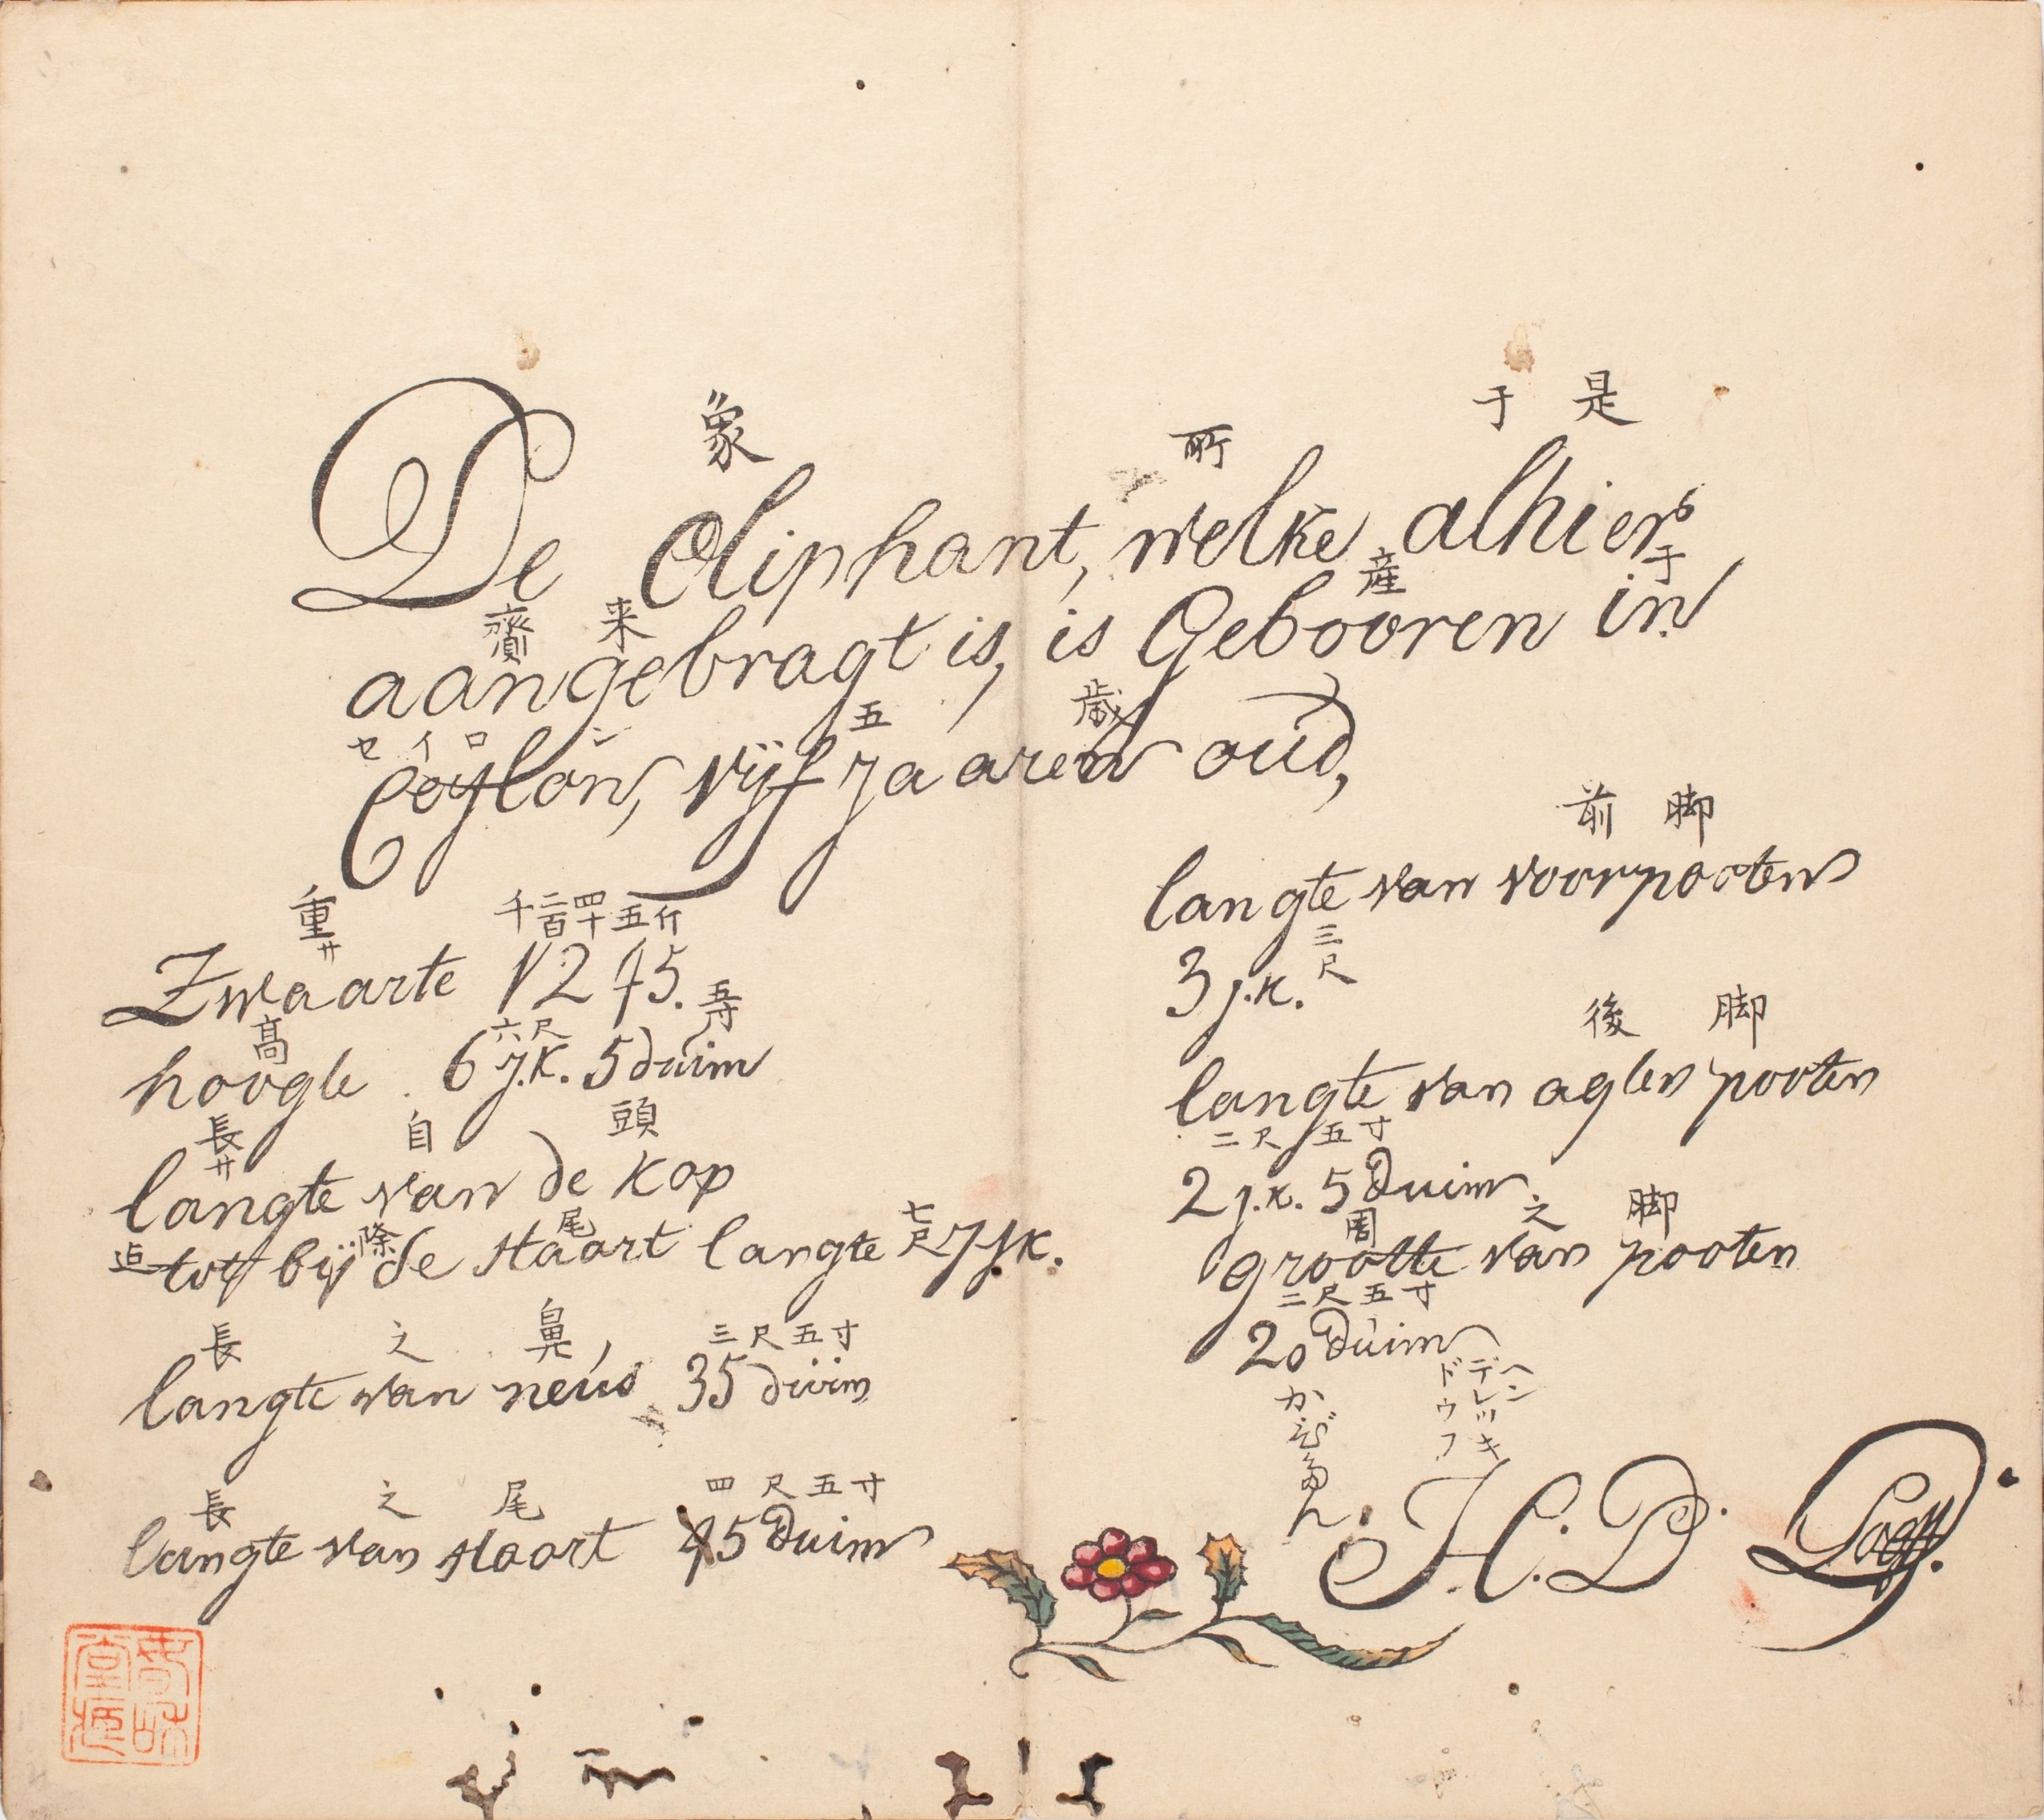 象 所 于 是
De Oliphant, welke alhier
齎 来 産 于
aangebragt is, is Gebooren in
セイロン 五 歳
Ceylon, vijf jaaren oud,
重サ 千二百四十五斤
Zwaarte 1245.
高 六尺 五寸
hoogte 6 j.k. 5 duim
長サ 自 頭
langte van de kop
迠 際 尾 七尺
tot bij de staart langte 7 j.k.
長 之 鼻 三尺五寸
langte van neus 35 duim
長 之 尾 四尺五寸
langte van staart 45 Duim
前 脚
langte van voorpooten
三尺
3 j.k.
後 脚
langte van agten pooten
二尺 五寸
2 j.k. 5 Duim
周 之 脚
grootte van pooten
二尺五寸
20 Duim
ヘン
デレッキ
ドウフ
かぴたん
H. D.